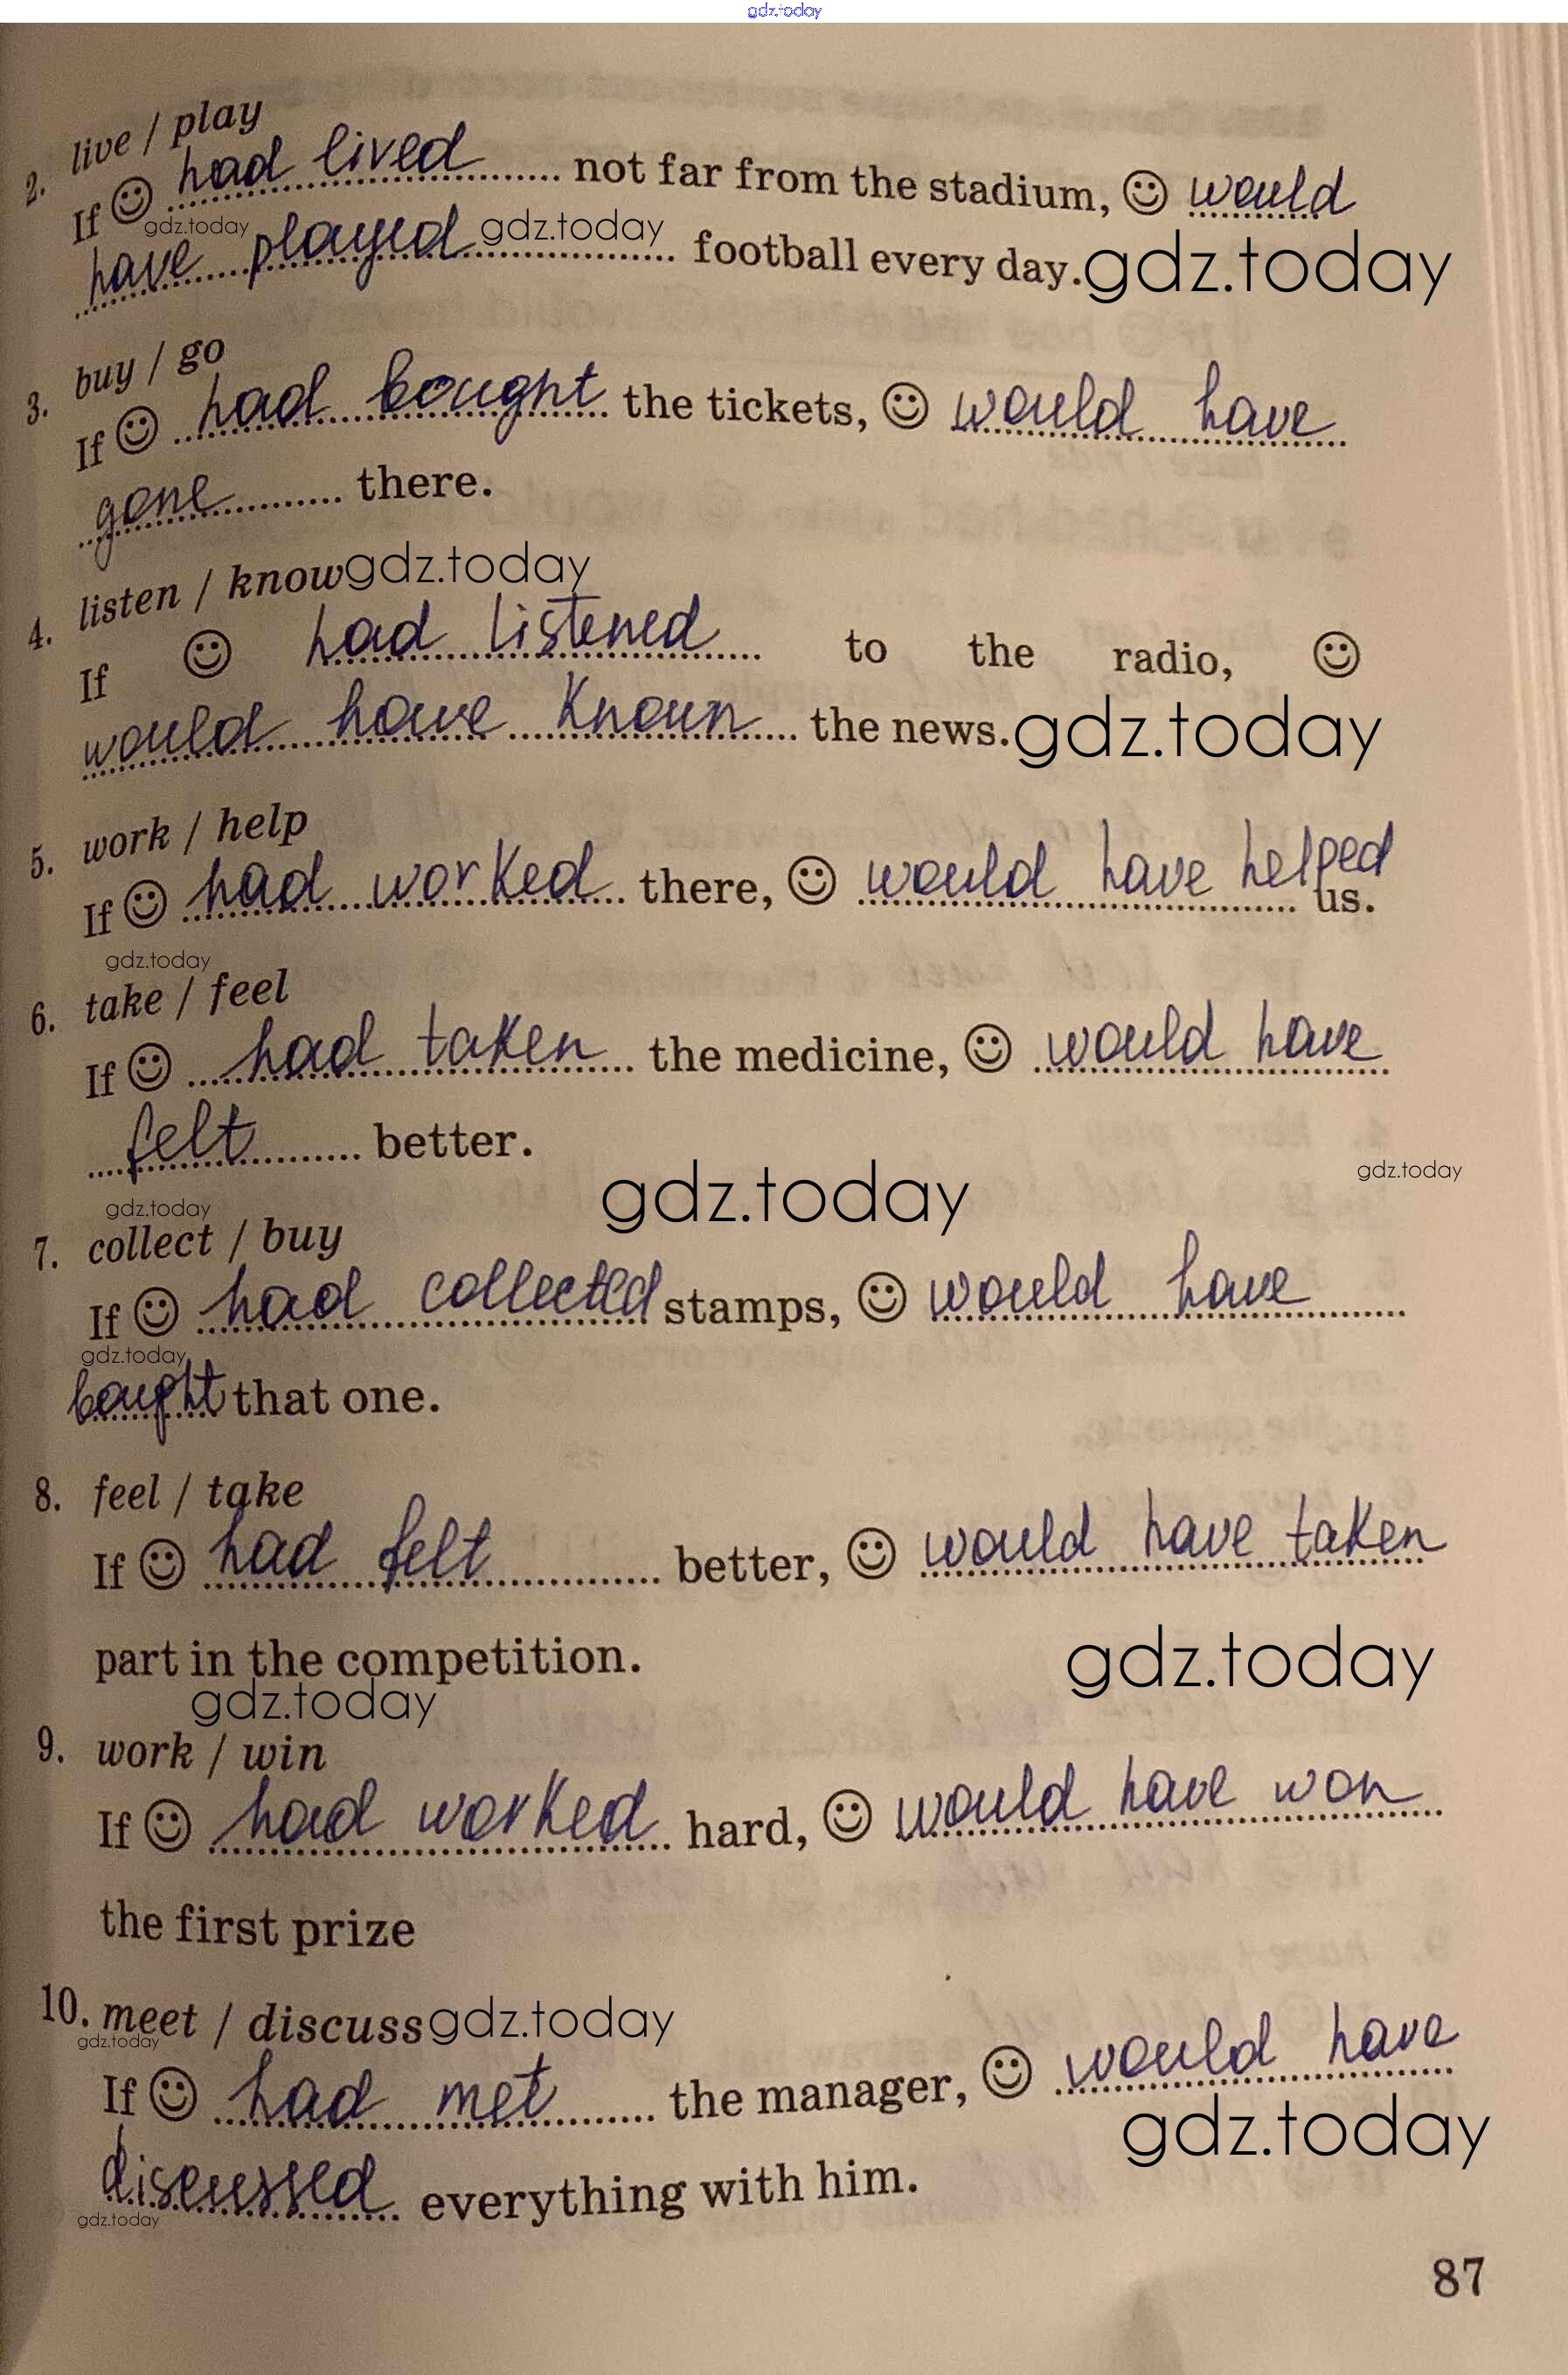 gdz.today
2. live / play
If ☺ had lived not far from the stadium, ☺ would
gdz.today
have played gdz.today football every day. gdz.today
3. buy / go
If ☺ had bought the tickets, ☺ would have
gone there.
4. listen / know gdz.today
If ☺ had listened to the radio, ☺
would have known the news. gdz.today
5. work / help
If ☺ had worked there, ☺ would have helped us.
gdz.today
6. take / feel
If ☺ had taken the medicine, ☺ would have
felt better.
gdz.today gdz.today
gdz.today
7. collect / buy
If ☺ had collected stamps, ☺ would have
gdz.today
bought that one.
8. feel / take
If ☺ had felt better, ☺ would have taken
part in the competition. gdz.today
gdz.today
9. work / win
If ☺ had worked hard, ☺ would have won
the first prize
10. meet / discuss gdz.today
gdz.today
If ☺ had met the manager, ☺ would have
gdz.today
discussed everything with him.
gdz.today
87